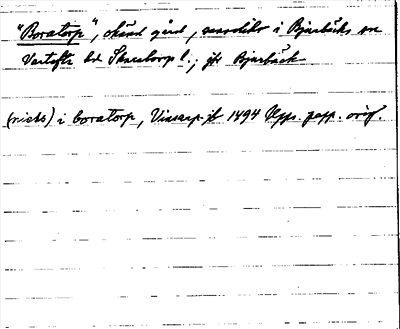 "Boratorp", okänd gård, sannolikt i Bjurbäcks sn
Vartofta hd Skaraborgs l.; jfr Bjurbäck
(nicts) i boratorp, Vinsarp. jb 1494 Upps. papp. orig.